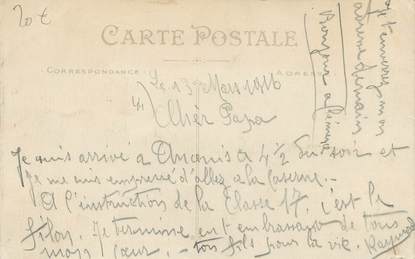 20 €
CARTE POSTALE
CORRESPONDANCE
ADRESSE
Le 13 Mars 1916
Cher Papa
Je suis arrivé a Ancenis a 4 1/2 du soir et
Je me suis empressé d'aller a la caserne.-
A l'instruction de la classe 17, c'est le
filon. Je termine en t'embrassant de tous
mon cœur. - ton fils pour la vie. Raymond
t'enverrez mon
adresse demain
Bonjour a